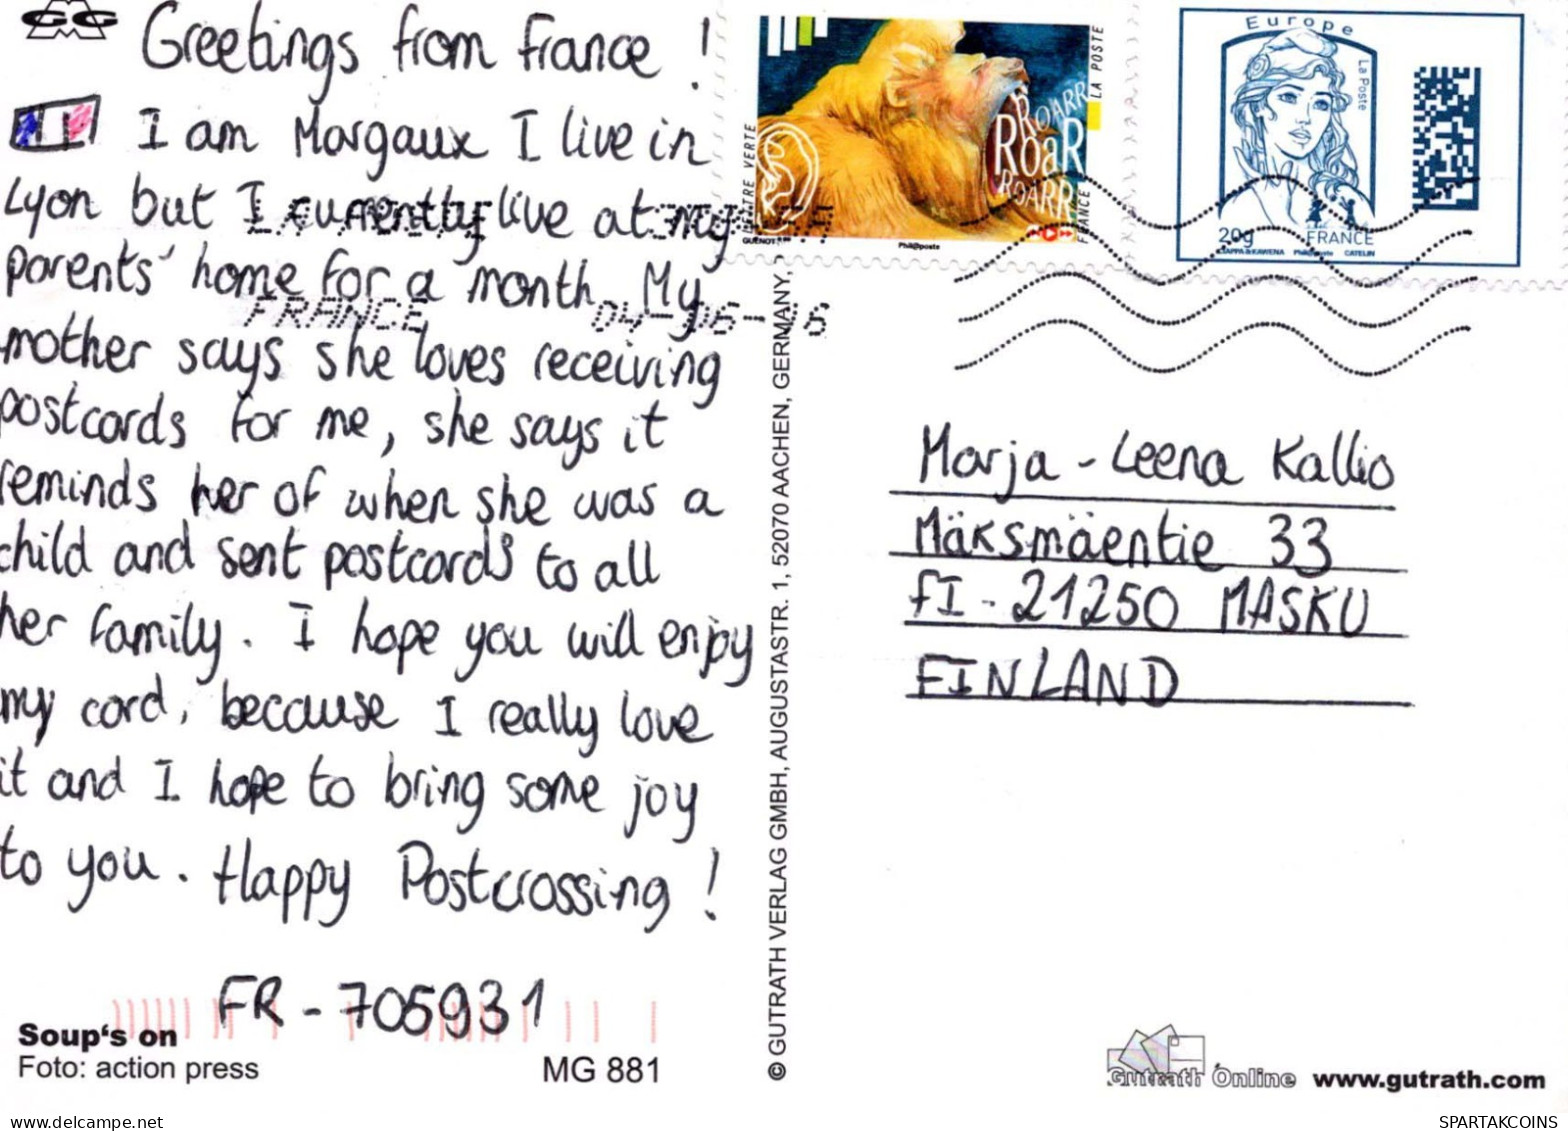 Greetings from France !
I am Margaux I live in
Lyon but I currently live at my
parents' home for a month. My
mother says she loves receiving
postcards for me, she says it
reminds her of when she was a
child and sent postcards to all
her family. I hope you will enjoy
my card, because I really love
it and I hope to bring some joy
to you. Happy Postcrossing !
FR - 705931
Soup's on
Foto: action press
MG 881
© GUTRATH VERLAG GMBH, AUGUSTASTR. 1, 52070 AACHEN, GERMANY,
LETTRE VERTE
LA POSTE
ROARR
ROaR
ROARR
FRANCE
GUENOT
Phil@poste
Europe
La Poste
20g
FRANCE
CIAPPA & KAWENA Phil@poste CATELIN
LA POSTE
FRANCE
Marja - Leena Kallio
Mäksmäentie 33
FI - 21250 MASKU
FINLAND
Gutrath Online www.gutrath.com
SPARTAKCOINS